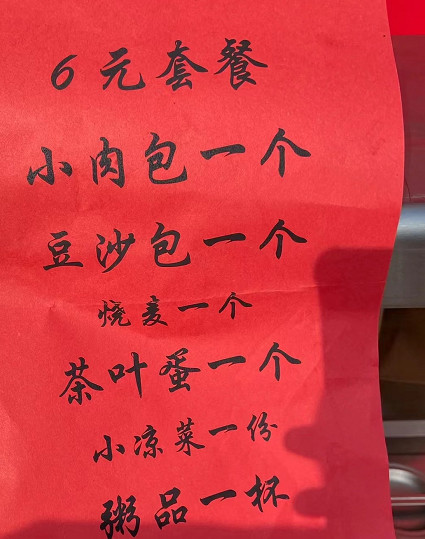 6元套餐
小肉包一个
豆沙包一个
烧麦一个
茶叶蛋一个
小凉菜一份
粥品一杯